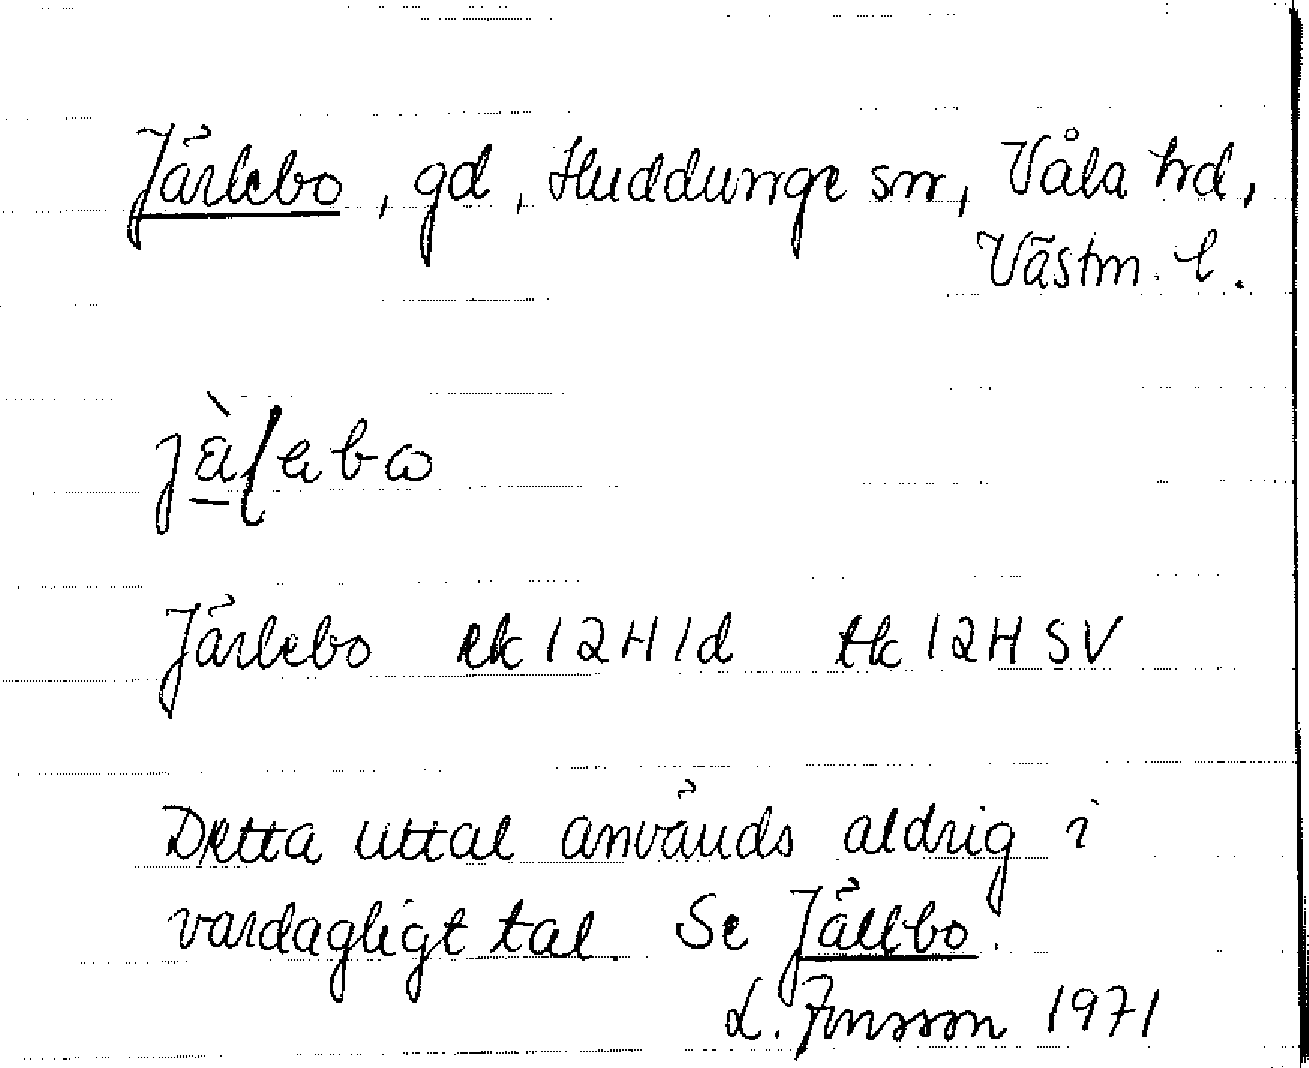 Järlebo, gd, Huddunge sn, Våla hd,
Västm. l.
Järlebo ek 12H1d tk 12H SV
Detta uttal används aldrig i
vardagligt tal. Se Jällbo.
L. Jonsson 1971